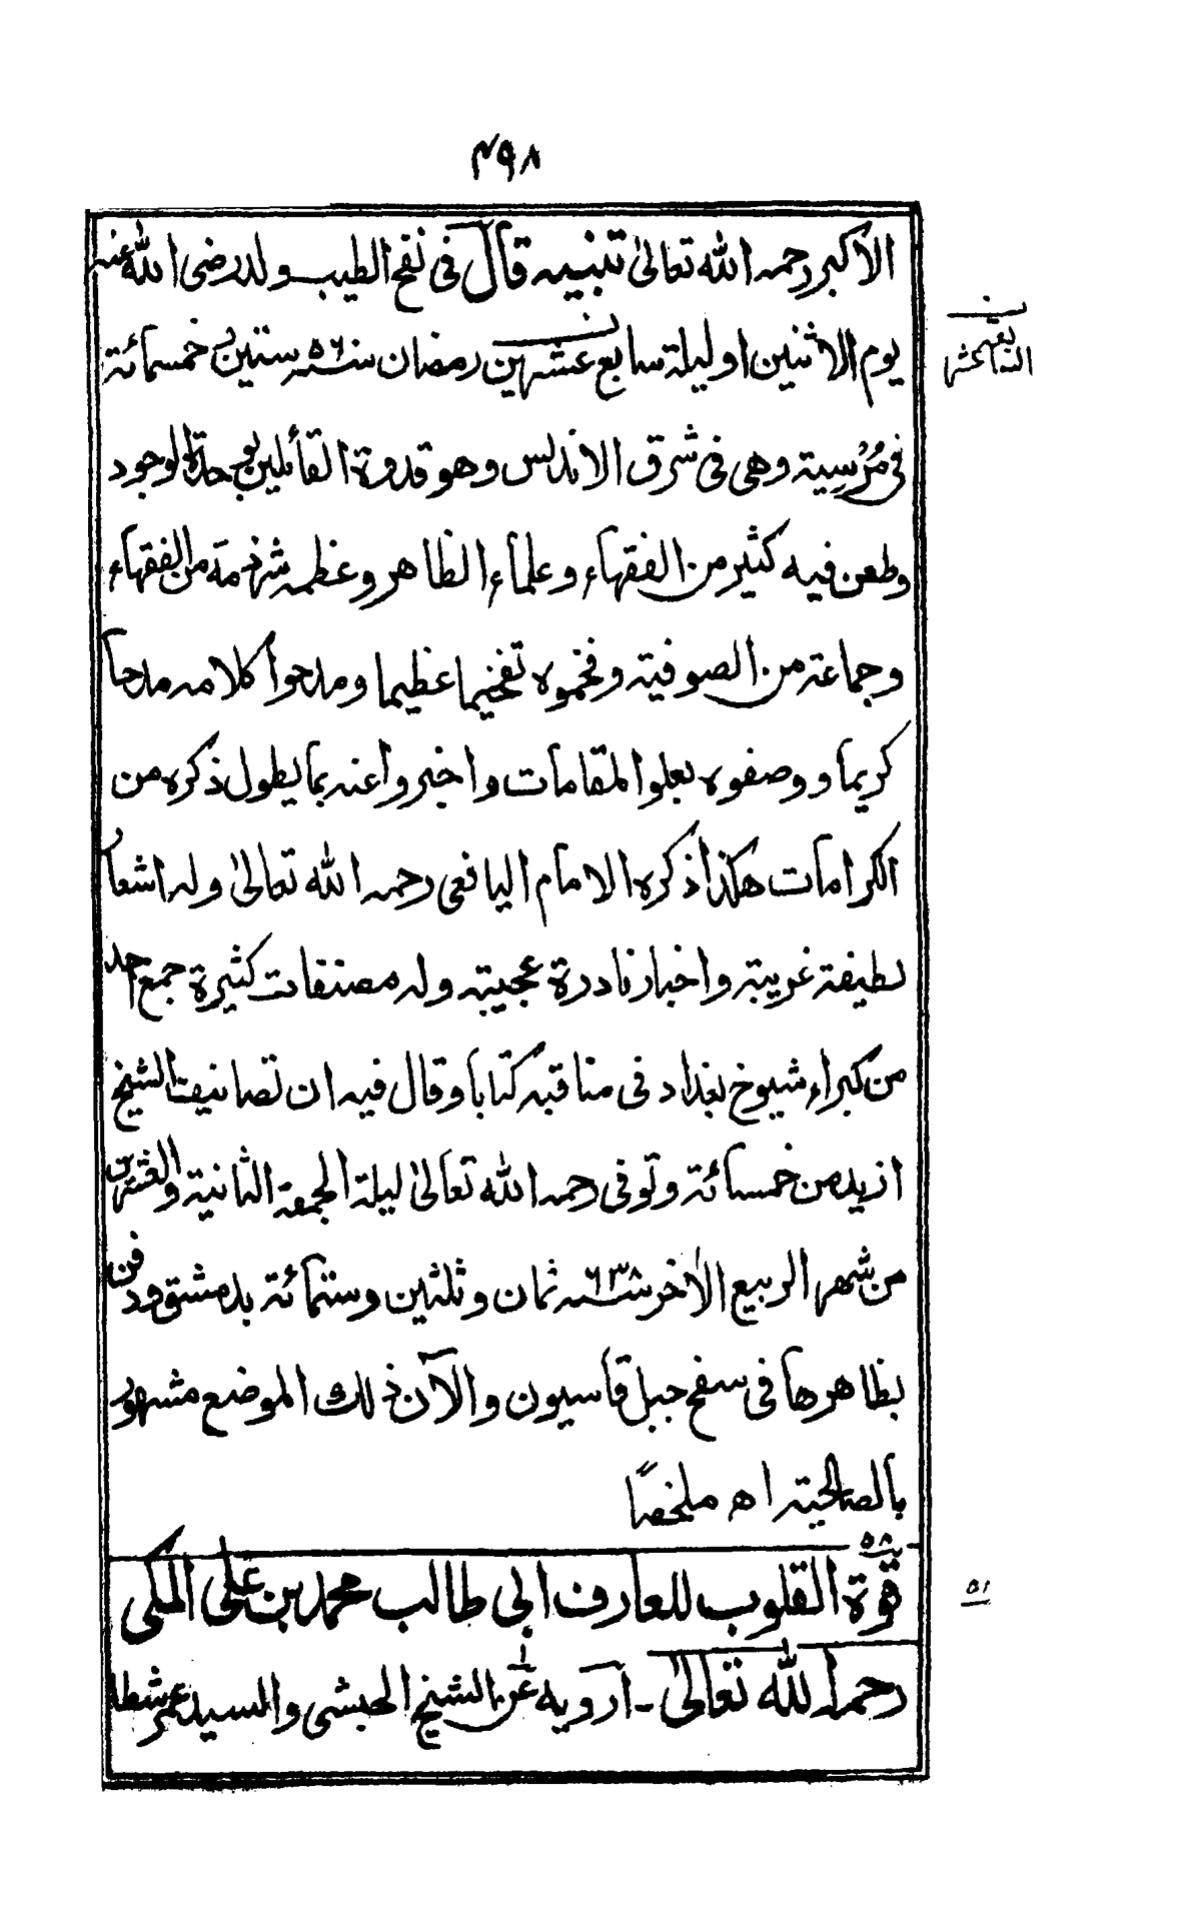 ٤٩٨
الاكبر رحمه الله تعالىٰ تنبيه قال فى نفح الطيب ولد رضى الله عنه
يوم الاثنين او ليلة سابع عشرين رمضان سنه ٥٦٠ ستين خمسمائة
فى مُرْسية وهى فى شرق الاندلس وهو قدوة القائلين بوحدة الوجود
وطعن فيه كثير من الفقهاء وعلماء الظاهر وعظمه شرذمة من الفقهاء
وجماعة من الصوفية وفخموه تفخيما عظيما ومدحوا كلامه مدحاً
كريما ووصفوه بعلو المقامات واخبروا عنه بما يطول ذكره من
الكرامات هكذا ذكره الامام اليافعى رحمه الله تعالىٰ وله اشعار
لطيفة غريبة واخبار نادرة عجيبة وله مصنفات كثيرة جمع احد
من كبراء شيوخ بغداد فى مناقبه كتابا وقال فيه ان تصانيف الشيخ
ازيد من خمسمائة وتوفى رحمه الله تعالىٰ ليلة الجمعة الثانية والعشرين
من شهر الربيع الآخر سنه ٦٣٨ ثمان وثلثين وستمائة بدمشق ودفن
بظاهرها فى سفح جبل قاسيون والآن ذلك الموضع مشهور
بالصالحية اه ملخصًا
٥٨
قوة القلوب للعارف ابى طالب محمد بن على المكى
٥١
رحمه الله تعالىٰ ـ ارويه عن الشيخ الحبشى والسيد عمر شطا